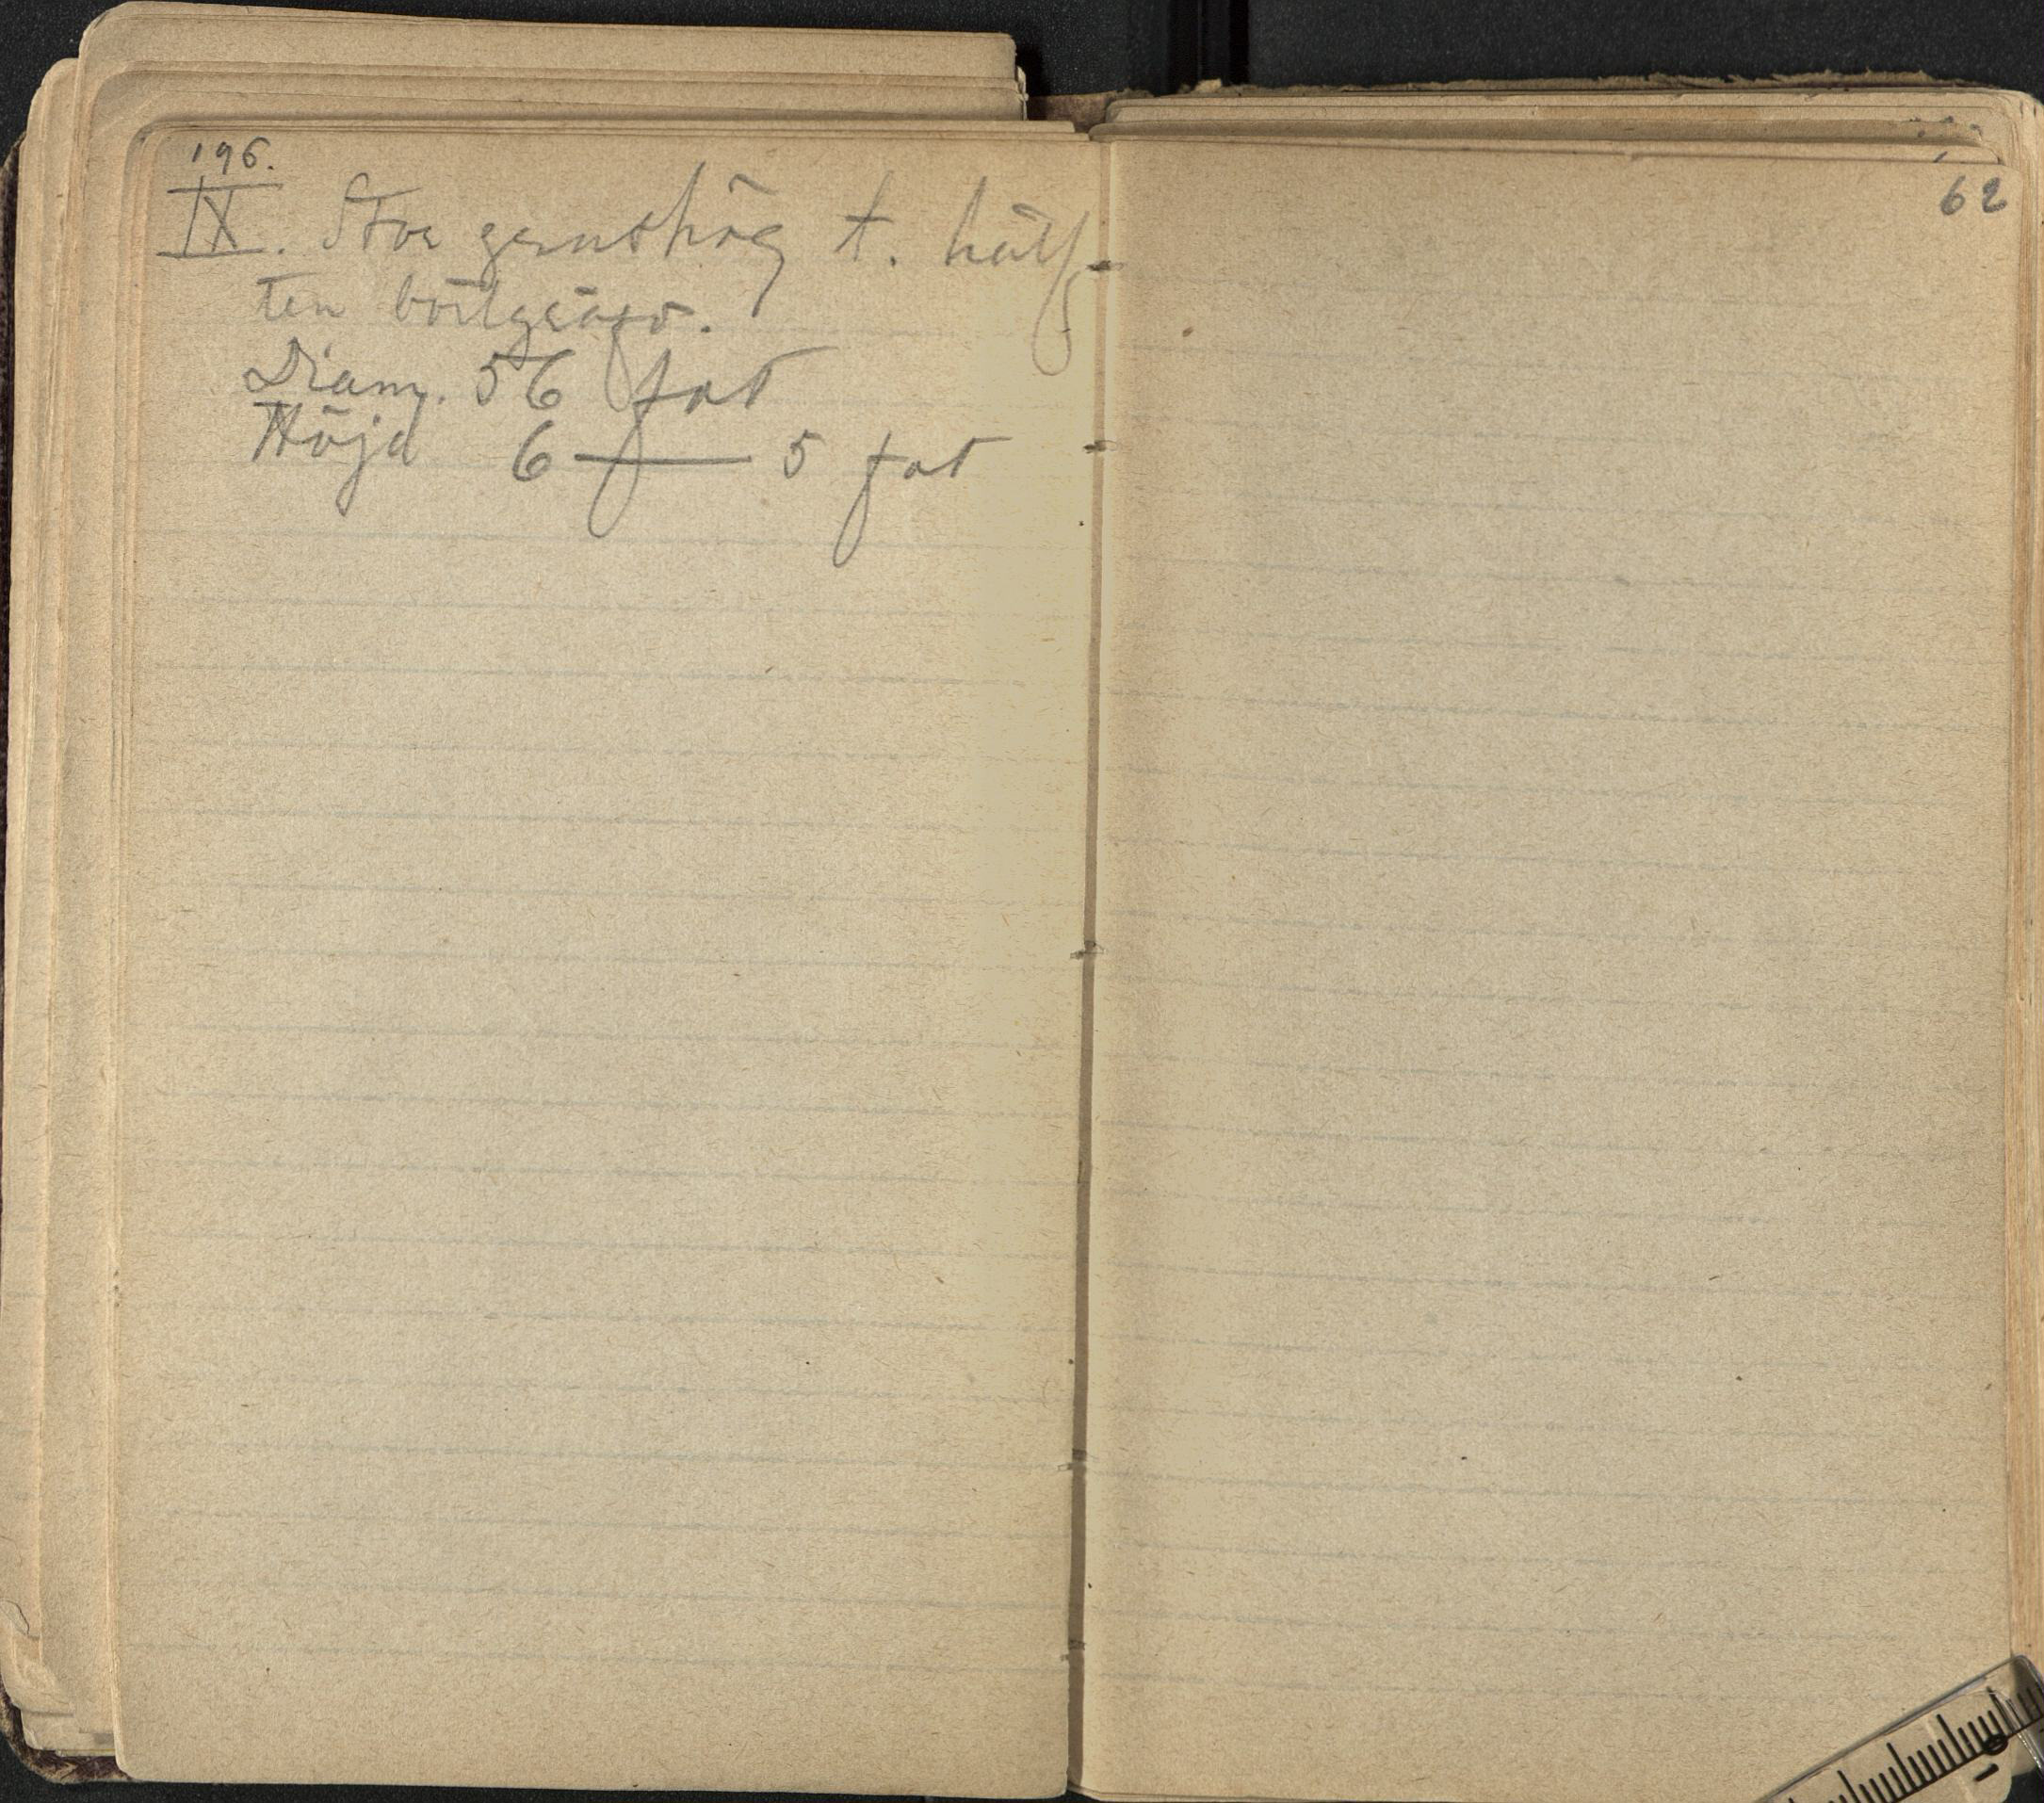 196.
IX. Stor grushög t. hälf-
ten bortgräfd.
Diam. 56 fot
Höjd 6 — 5 fot
62